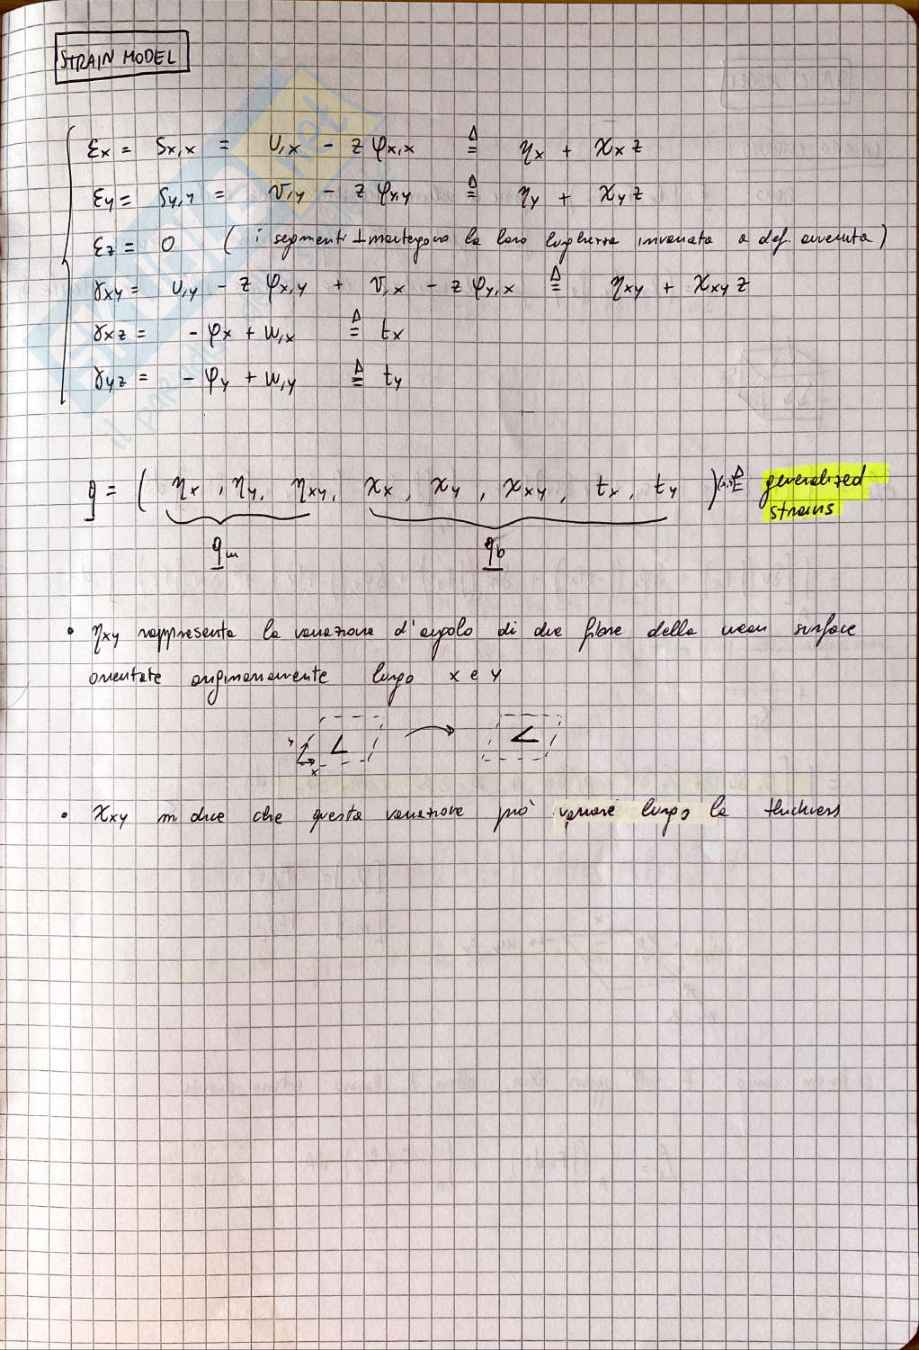 STRAIN MODEL
εx = Sx,x = u,x - z φx,x ≜ ηx + χx z
εy = Sy,y = v,y - z φy,y ≜ ηy + χy z
εz = 0 ( i segmenti ⊥ mantengono la loro lunghezza invariata a def. avvenuta )
γxy = u,y - z φx,y + v,x - z φy,x ≜ ηxy + χxy z
γxz = - φx + w,x ≜ tx
γyz = - φy + w,y ≜ ty
q = ( ηx , ηy, ηxy, χx , χy , χxy , tx , ty ) ≜ generalized
strains
qm qb
• ηxy rappresenta la variazione d'angolo di due fibre della mean surface
orientate originariamente lungo x e y
y
x
• χxy ci dice che questa variazione può variare lungo la thickness